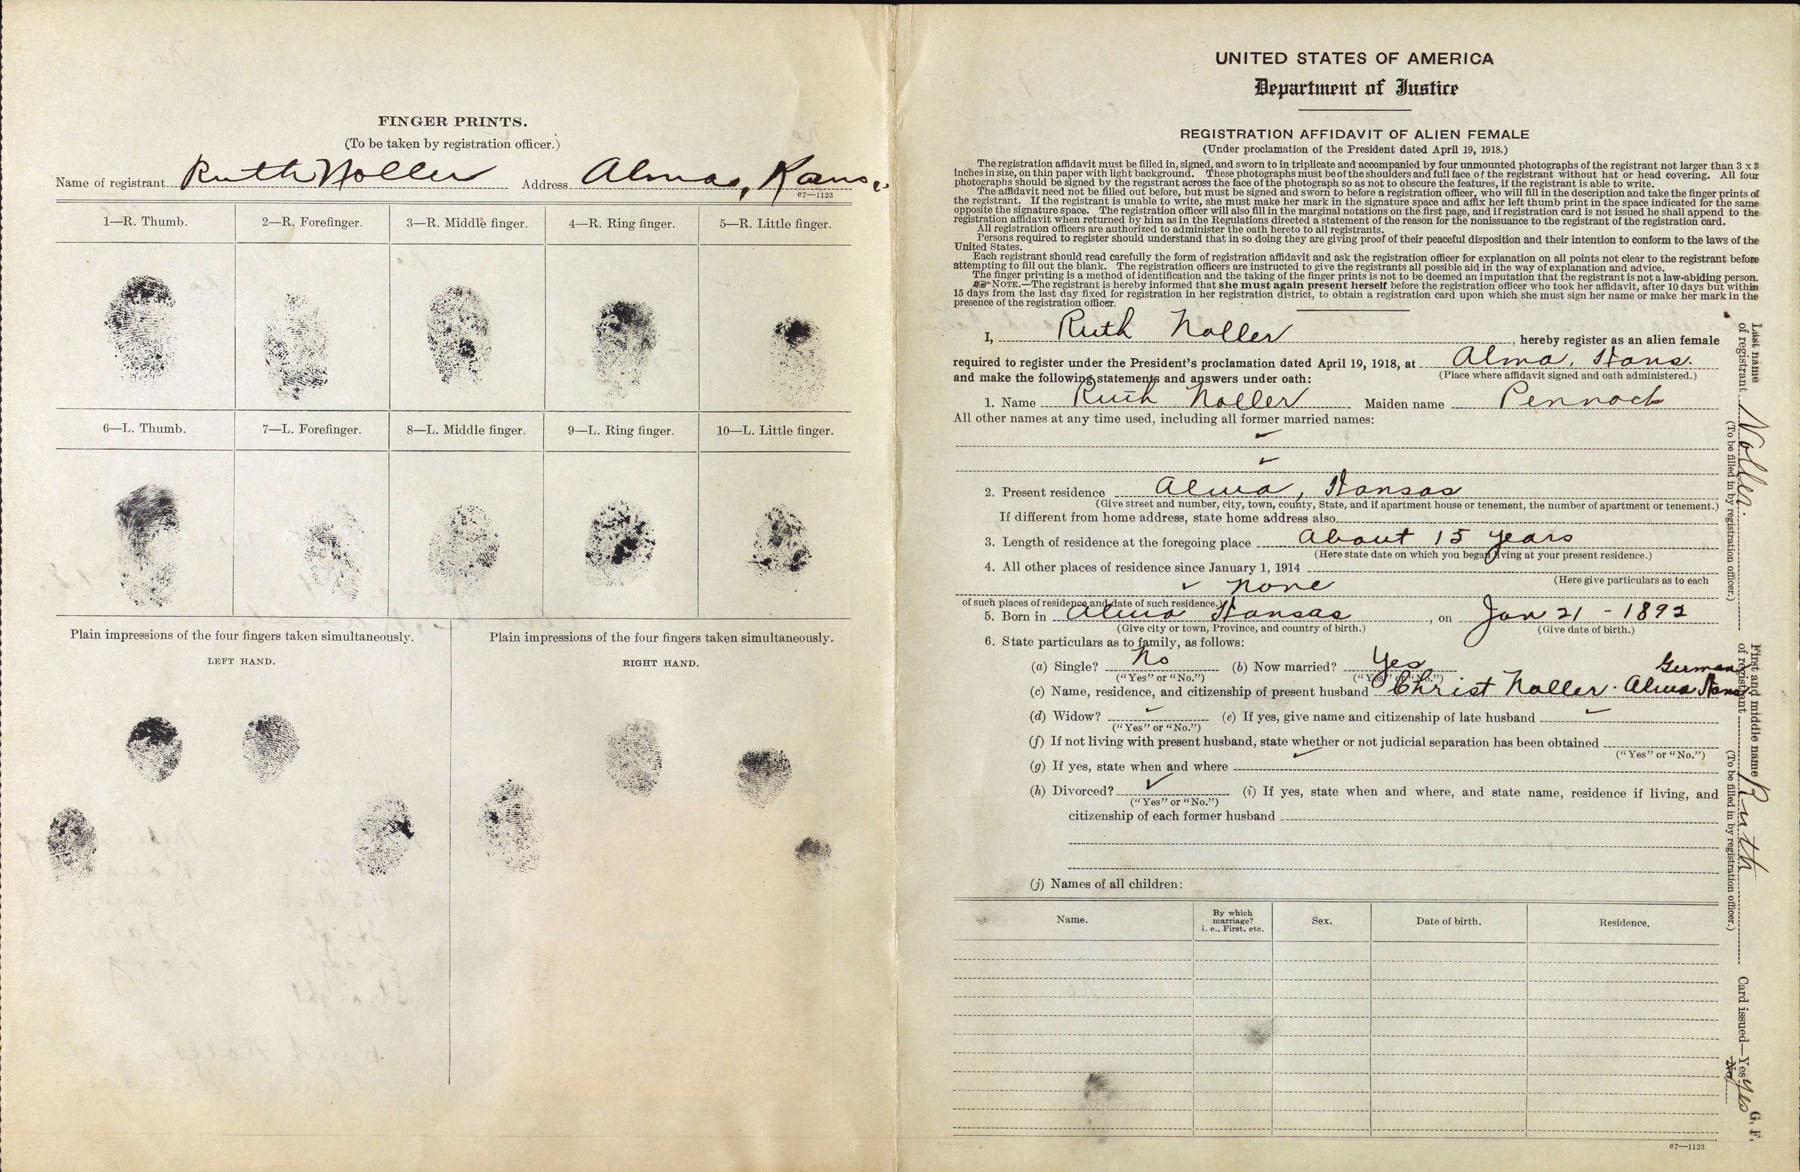 FINGER PRINTS.
(To be taken by registration officer.)
Name of registrant Ruth Noller Address Alma, Kans.
c7—1123
1—R. Thumb. 2—R. Forefinger. 3—R. Middle finger. 4—R. Ring finger. 5—R. Little finger.
6—L. Thumb. 7—L. Forefinger. 8—L. Middle finger. 9—L. Ring finger. 10—L. Little finger.
Plain impressions of the four fingers taken simultaneously. Plain impressions of the four fingers taken simultaneously.
LEFT HAND. RIGHT HAND.
UNITED STATES OF AMERICA
Department of Justice
REGISTRATION AFFIDAVIT OF ALIEN FEMALE
(Under proclamation of the President dated April 19, 1918.)
The registration affidavit must be filled in, signed, and sworn to in triplicate and accompanied by four unmounted photographs of the registrant not larger than 3 x 3
inches in size, on thin paper with light background. These photographs must be of the shoulders and full face of the registrant without hat or head covering. All four
photographs should be signed by the registrant across the face of the photograph so as not to obscure the features, if the registrant is able to write.
The affidavit need not be filled out before, but must be signed and sworn to before a registration officer, who will fill in the description and take the finger prints of
the registrant. If the registrant is unable to write, she must make her mark in the signature space and affix her left thumb print in the space indicated for the same
opposite the signature space. The registration officer will also fill in the marginal notations on the first page, and if registration card is not issued he shall append to the
registration affidavit when returned by him as in the Regulations directed a statement of the reason for the nonissuance to the registrant of the registration card.
All registration officers are authorized to administer the oath hereto to all registrants.
Persons required to register should understand that in so doing they are giving proof of their peaceful disposition and their intention to conform to the laws of the
United States.
Each registrant should read carefully the form of registration affidavit and ask the registration officer for explanation on all points not clear to the registrant before
attempting to fill out the blank. The registration officers are instructed to give the registrants all possible aid in the way of explanation and advice.
The finger printing is a method of identification and the taking of the finger prints is not to be deemed an imputation that the registrant is not a law-abiding person.
NOTE.—The registrant is hereby informed that she must again present herself before the registration officer who took her affidavit, after 10 days but within
15 days from the last day fixed for registration in her registration district, to obtain a registration card upon which she must sign her name or make her mark in the
presence of the registration officer.
I, Ruth Noller, hereby register as an alien female
required to register under the President's proclamation dated April 19, 1918, at Alma, Kans.
(Place where affidavit signed and oath administered.)
and make the following statements and answers under oath:
1. Name Ruth Noller Maiden name Pennock
All other names at any time used, including all former married names:
✓
✓
2. Present residence Alma, Kansas
(Give street and number, city, town, county, State, and if apartment house or tenement, the number of apartment or tenement.)
If different from home address, state home address also
3. Length of residence at the foregoing place About 15 years
(Here state date on which you began living at your present residence.)
4. All other places of residence since January 1, 1914
(Here give particulars as to each
✓ none
of such places of residence and date of such residence.)
5. Born in Alma Kansas, on Jan 21 - 1892
(Give city or town, Province, and country of birth.) (Give date of birth.)
6. State particulars as to family, as follows:
(a) Single? No (b) Now married? Yes
("Yes" or "No.") ("Yes" or "No.")
German
(c) Name, residence, and citizenship of present husband Christ Noller. Alma Kans
(d) Widow? ✓ (e) If yes, give name and citizenship of late husband ✓
("Yes" or "No.")
(f) If not living with present husband, state whether or not judicial separation has been obtained
("Yes" or "No.")
(g) If yes, state when and where ✓
(h) Divorced? ✓ (i) If yes, state when and where, and state name, residence if living, and
("Yes" or "No.")
citizenship of each former husband
(j) Names of all children:
Name. By which marriage? i. e., First, etc. Sex. Date of birth. Residence.
c7—1123
Last name of registrant Noller.
(To be filled in by registration officer.)
First and middle name of registrant Ruth
(To be filled in by registration officer.)
Card issued—Yes yes
No
G. F.